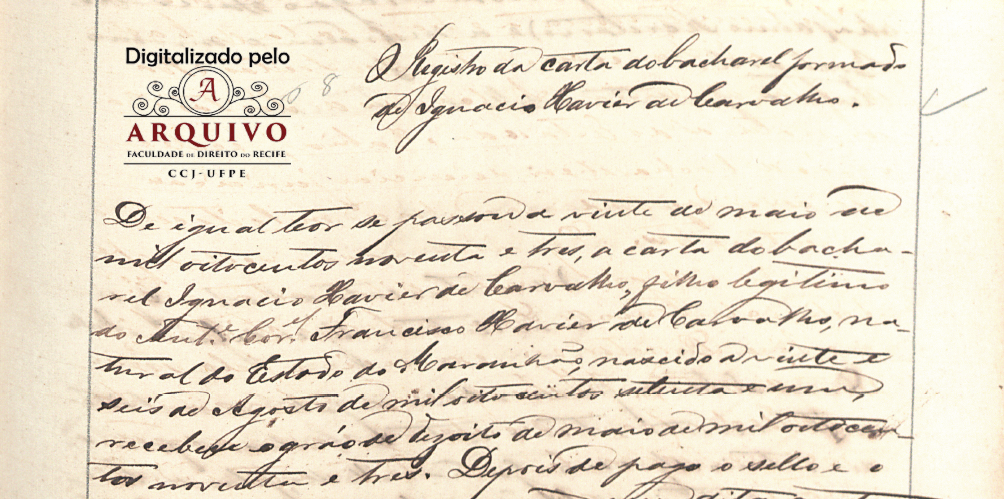 Digitalizado pelo
A
ARQUIVO
FACULDADE DE DIREITO DO RECIFE
CCJ-UFPE
8
O Registro da carta do bacharel formado
de Ignacio Xavier de Carvalho.
De igual teor se passou a vinte de maio de
mil oitocentos noventa e tres, a carta do bacha-
rel Ignacio Xavier de Carvalho, filho legitimo
do Francisco Xavier de Carvalho, na-
tural do Estado do Maranhão, nascido a vinte e
seis de Agosto de mil oitocentos setenta e um,
recebeu o gráo de dezoito de maio de mil oitocen-
tos noventa e tres. Depois de pago o sello e o